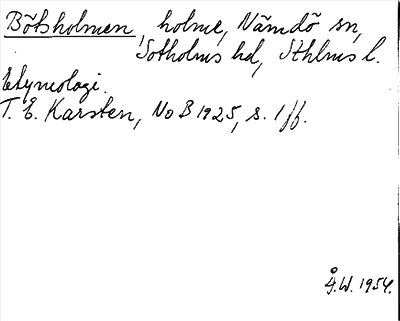 Bötsholmen, holme, Nämdö sn,
Sotholms hd, Sthlms l.
Etymologi.
T. E. Karsten, No B 1925, s. 1 ff.
Å.W. 1954.